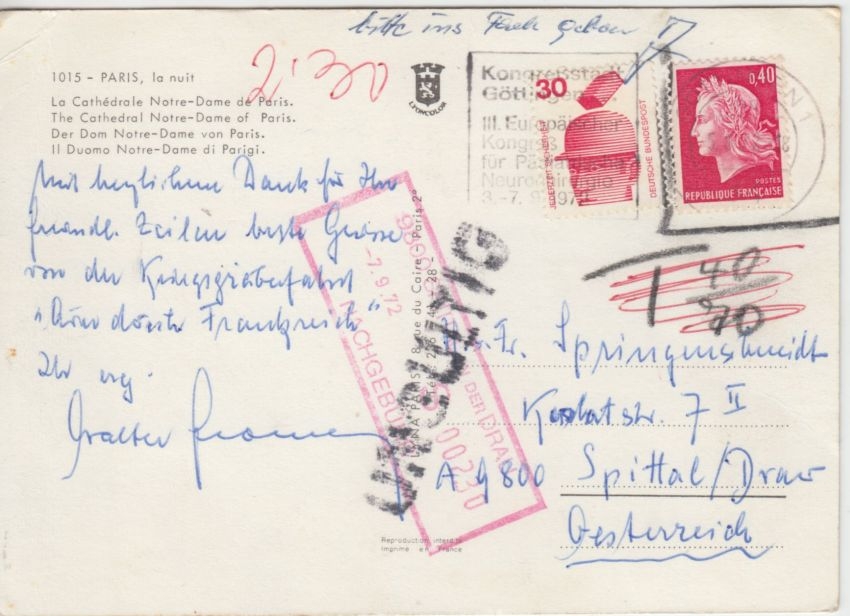 bitte ins Fach geben
1015 – PARIS, la nuit
La Cathédrale Notre-Dame de Paris.
The Cathedral Notre-Dame of Paris.
Der Dom Notre-Dame von Paris.
Il Duomo Notre-Dame di Parigi.
2·30
LYONCOLOR
Kongreßstadt
Göttingen
III. Europäischer
Kongreß
für Pädiatrische
Neurochirurgie
3.-7. 9.
30
JEDERZEIT SICHERHEIT
DEUTSCHE BUNDESPOST
0,40
POSTES
REPUBLIQUE FRANÇAISE
Mit herzlichem Dank für Ihre
freundl. Zeilen beste Grüsse
von der Kriegsgräberfahrt
Frankreich"
Ihr erg.
Walter
9800
AN DER DRAU
-7.9.72
NACHGEBÜHR
00230
UNGULTIG
8 rue du Caire - Paris 2°
T 40
90
Fr. Springenschmidt
7 II
A 9800 Spittal/Drau
Oesterreich
Reproduction interdite
Imprimé en France